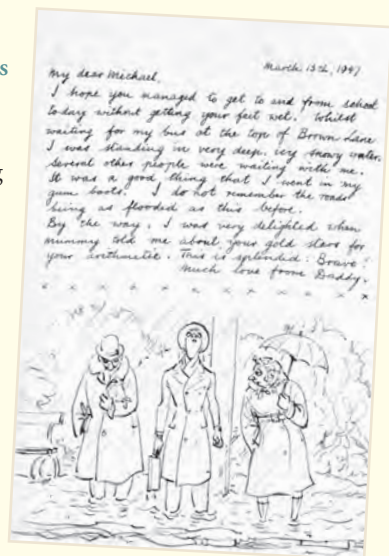 s
March 13th, 1947
My dear Michael,
I hope you managed to get to and from school
today without getting your feet wet. Whilst
waiting for my bus at the top of Brown Lane
I was standing in very deep, icy snowy water.
Several other people were waiting with me.
It was a good thing that I went in my
gum boots. I do not remember the roads
being as flooded as this before.
By the way, I was very delighted when
Mummy told me about your gold stars for
your arithmetic. This is splendid: Bravo!
Much love from Daddy.
x x x x x x x x x x x
g